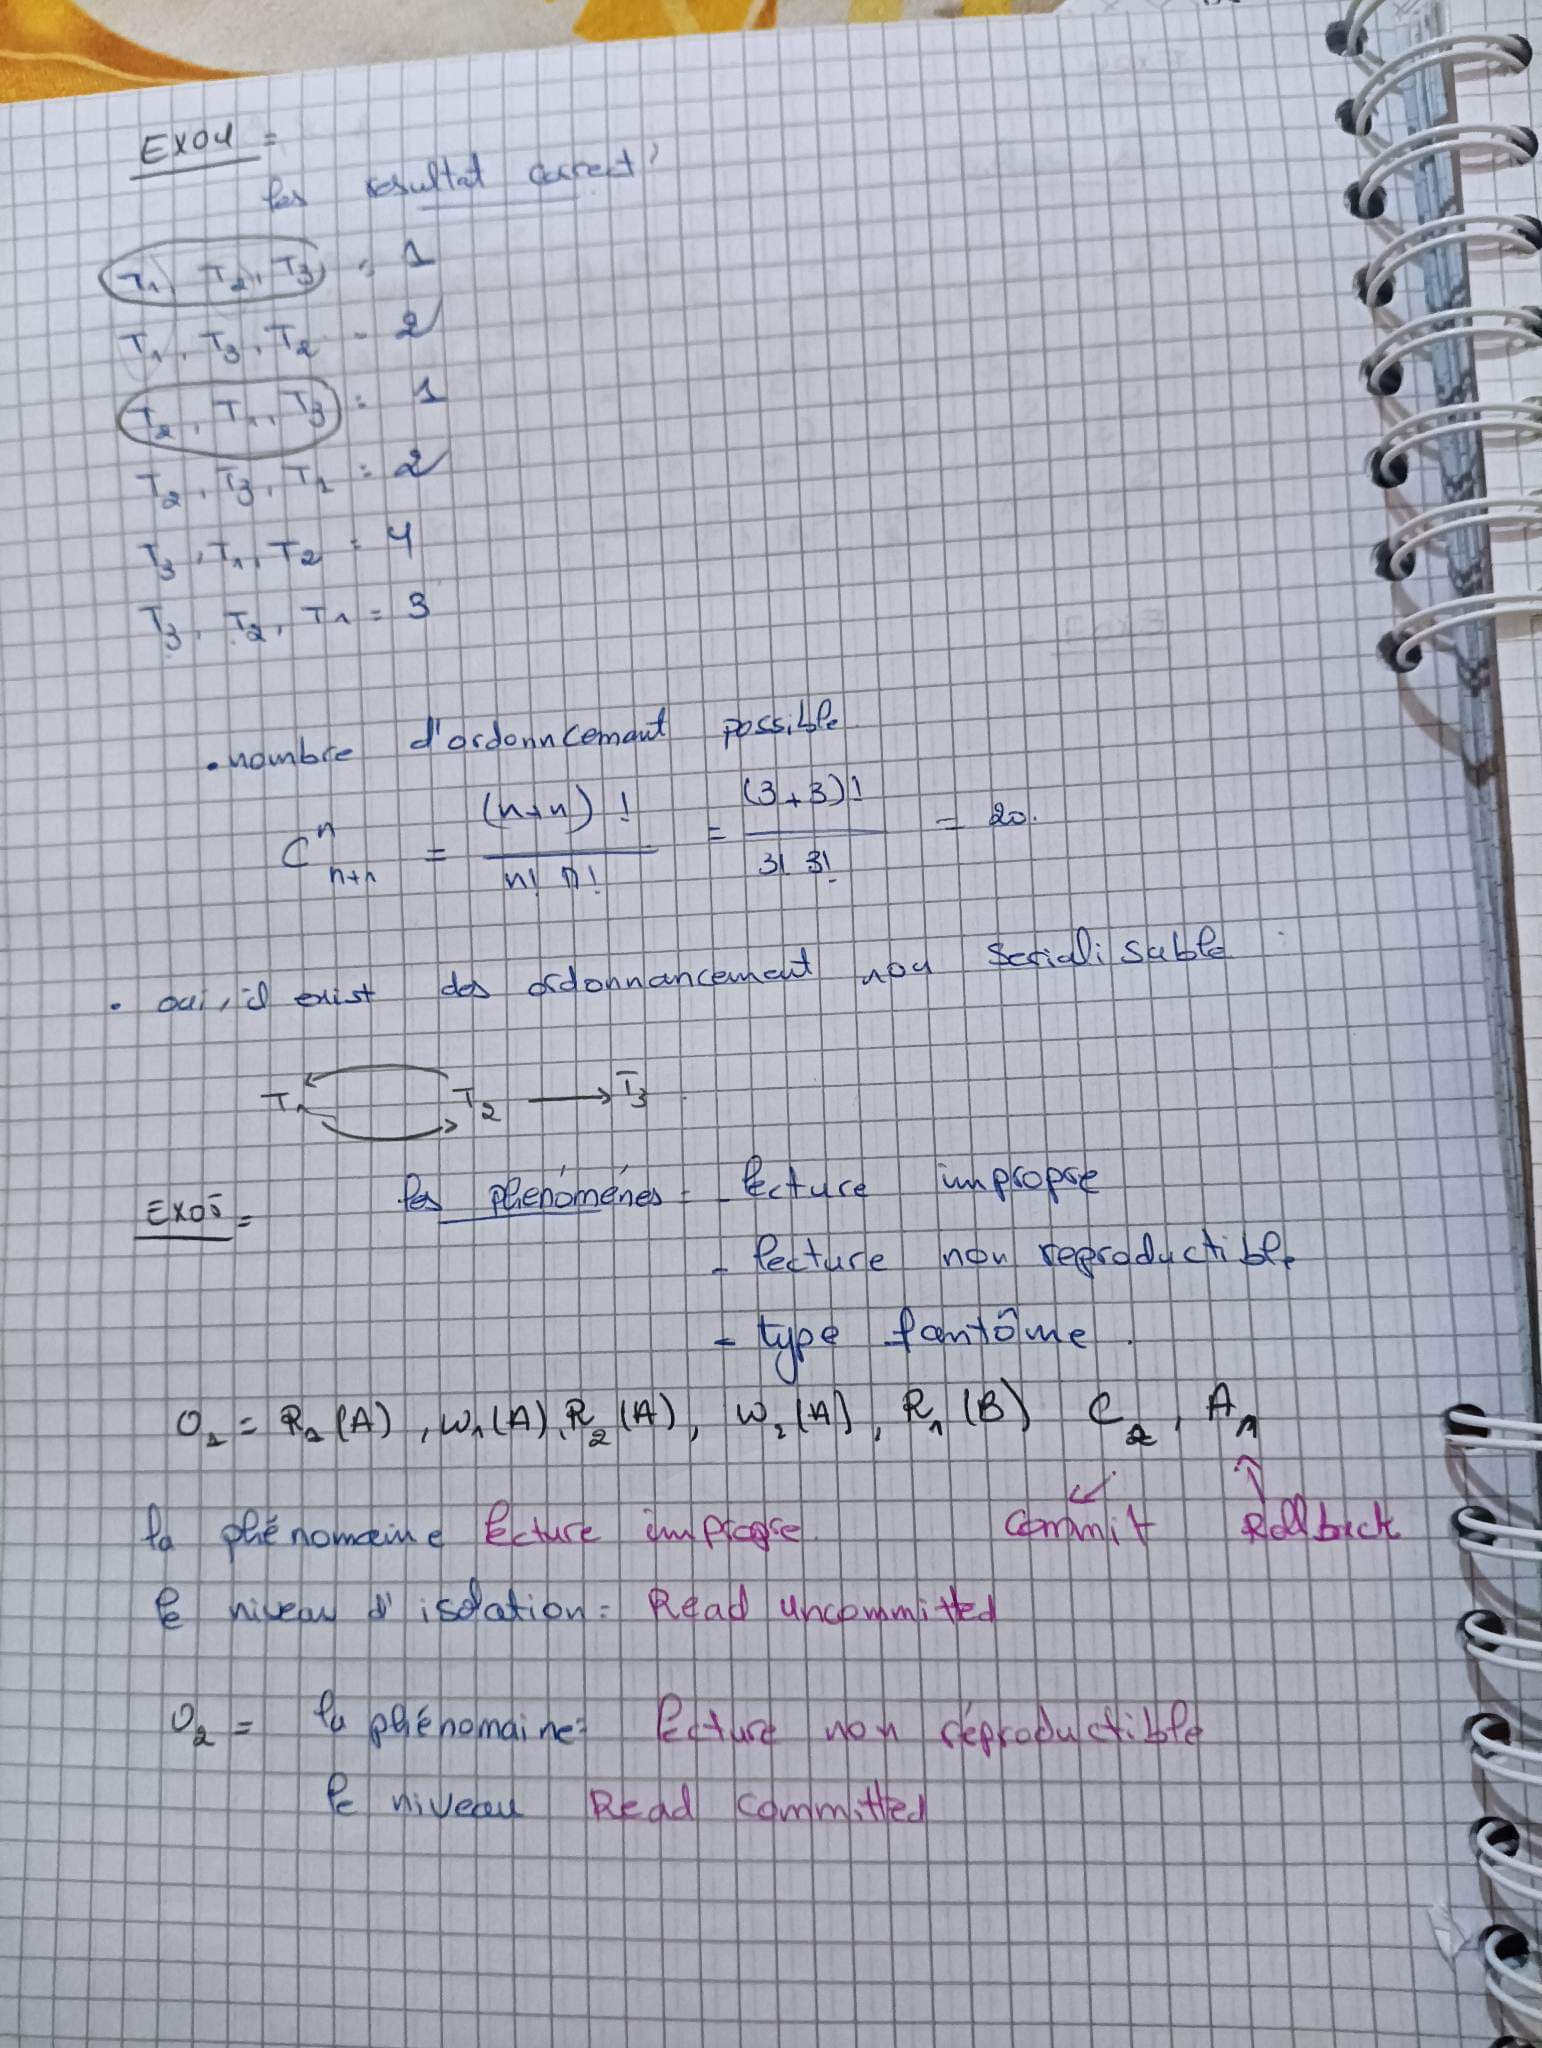 EX04 =
les resultat correct
T1, T2, T3 = 1
T1, T3, T2 = 2
T2, T1, T3 = 1
T2, T3, T1 = 2
T3, T1, T2 = 4
T3, T2, T1 = 3
• nombre d'ordonncemant possible
C^n_{n+n} = (n+n)! / n! n! = (3+3)! / 3! 3! = 20.
• oui, il exist des ordonnancement non serialisable
T1 T2 → T3
EX05 = les phénoménes = - lecture impropre
- lecture non reproductible
- type fantôme.
O1 = R1(A), W1(A), R2(A), W2(A), R1(B) C2, A1
la phénomaine lecture impropre. commit Rollback
le niveau d'isolation = Read uncommitted
O2 = la phénomaine = lecture non réproductible
le niveau Read committed